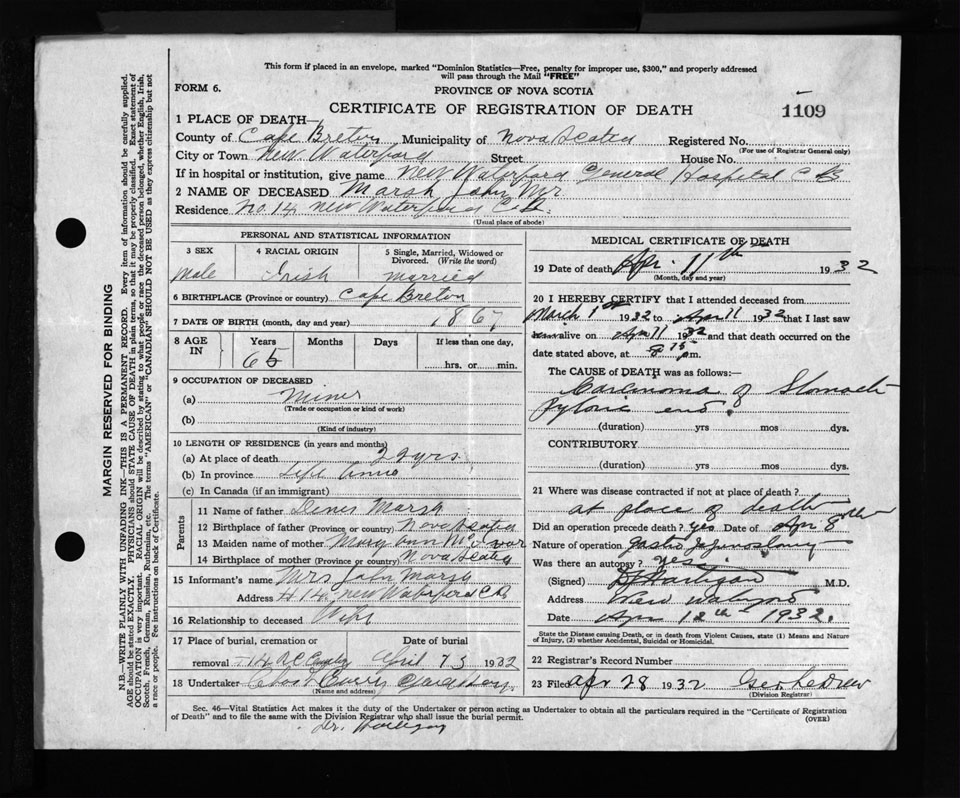 This form if placed in an envelope, marked "Dominion Statistics—Free, penalty for improper use, $300," and properly addressed
will pass through the Mail "FREE"
FORM 6.
PROVINCE OF NOVA SCOTIA
CERTIFICATE OF REGISTRATION OF DEATH
1109
1 PLACE OF DEATH—
County of Cape Breton Municipality of Nova Scotia Registered No.
(For use of Registrar General only)
City or Town New Waterford Street House No.
If in hospital or institution, give name New Waterford General Hospital C B
2 NAME OF DECEASED Marsh John Mr
Residence No. 14 New Waterford C.B.
(Usual place of abode)
PERSONAL AND STATISTICAL INFORMATION
3 SEX 4 RACIAL ORIGIN 5 Single, Married, Widowed or Divorced. (Write the word)
Male Irish Married
6 BIRTHPLACE (Province or country) Cape Breton
7 DATE OF BIRTH (month, day and year) 1867
8 AGE IN Years Months Days If less than one day,
65 hrs. or min.
9 OCCUPATION OF DECEASED
(a) Miner
(Trade or occupation or kind of work)
(b)
(Kind of industry)
10 LENGTH OF RESIDENCE (in years and months)
(a) At place of death 22 yrs
(b) In province Life
(c) In Canada (if an immigrant)
Parents
11 Name of father Marsh
12 Birthplace of father (Province or country) Nova Scotia
13 Maiden name of mother Mary Ann
14 Birthplace of mother (Province or country) Nova Scotia
15 Informant's name Mrs John Marsh
Address # 14 New Waterford C B
16 Relationship to deceased Wife
17 Place of burial, cremation or Date of burial
removal R C April 13 1932
18 Undertaker Curry
(Name and address)
MEDICAL CERTIFICATE OF DEATH
19 Date of death Apr. 11th 1932
(Month, day and year)
20 I HEREBY CERTIFY that I attended deceased from
March 1st 1932 to Apr 11 1932 that I last saw
alive on Apr 11 1932 and that death occurred on
date stated above, at 8 15 m.
The CAUSE of DEATH was as follows:—
Carcinoma of Stomach
Pyloric end.
(duration) yrs mos dys.
CONTRIBUTORY
(duration) yrs mos dys.
21 Where was disease contracted if not at place of death?
at place of death
Did an operation precede death? yes Date of Apr 8th
Nature of operation
Was there an autopsy? yes.
(Signed) Hartigan M.D.
Address New Waterford
Date Apr 12th 1932.
State the Disease causing Death, or in death from Violent Causes, state (1) Means and Nature
of Injury, (2) whether Accidental, Suicidal or Homicidal.
22 Registrar's Record Number
23 Filed Apr 28 1932 Geo LeDrew
(Division Registrar)
Sec. 46—Vital Statistics Act makes it the duty of the Undertaker or person acting as Undertaker to obtain all the particulars required in the "Certificate of Registration
of Death" and to file the same with the Division Registrar who shall issue the burial permit.
(OVER)
Dr. Hartigan
MARGIN RESERVED FOR BINDING
N.B.—WRITE PLAINLY WITH UNFADING INK—THIS IS A PERMANENT RECORD. Every item of information should be carefully supplied.
AGE should be stated EXACTLY. PHYSICIANS should STATE CAUSE OF DEATH in plain terms, so that it may be properly classified. Exact statement of
OCCUPATION is very important. RACIAL ORIGIN will be described by stating to what people or race the deceased person belonged, whether English, Irish,
Scotch, French, German, Russian, Ruthenian, etc. The terms "AMERICAN" or "CANADIAN" SHOULD NOT BE USED as they express citizenship but not
a race or people. Fee instructions on back of Certificate.